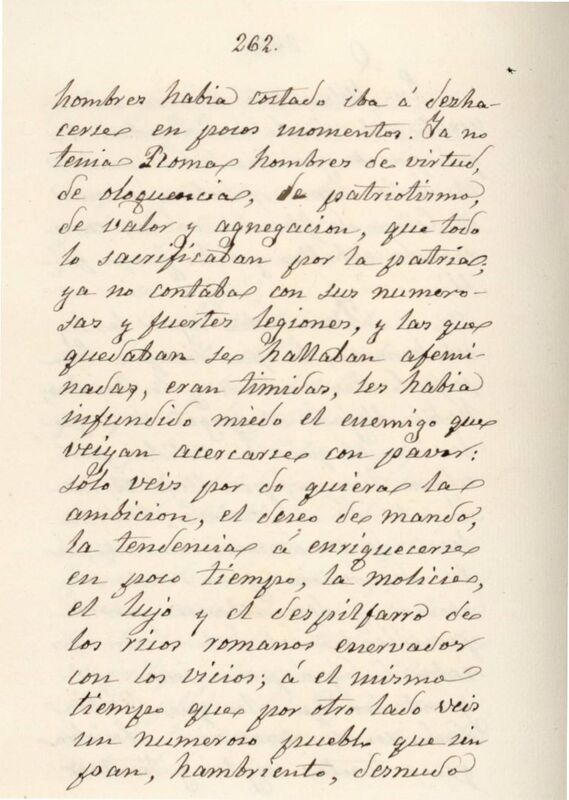 262.
hombres habia costado iba á desha-
cerse en pocos momentos. Ya no
tenia Roma hombres de virtud,
de oloquencia, de patriotismo,
de valor y agnegacion, que todo
lo sacrificaban por la patria;
ya no contaba con sus numero-
sas y fuertes legiones, y las que
quedaban se hallaban afemi-
nadas, eran timidas, les habia
infundido miedo el enemigo que
veiyan acercarse con pavor:
solo veis por do quiera la
ambicion, el deseo de mando,
la tendencia á enriquecerse
en poco tiempo, la molicie,
el lujo y el despilfarro de
los ricos romanos enervados
con los vicios; á el mismo
tiempo que por otro lado veis
un numeroso pueblo que sin
pan, hambriento, desnudo